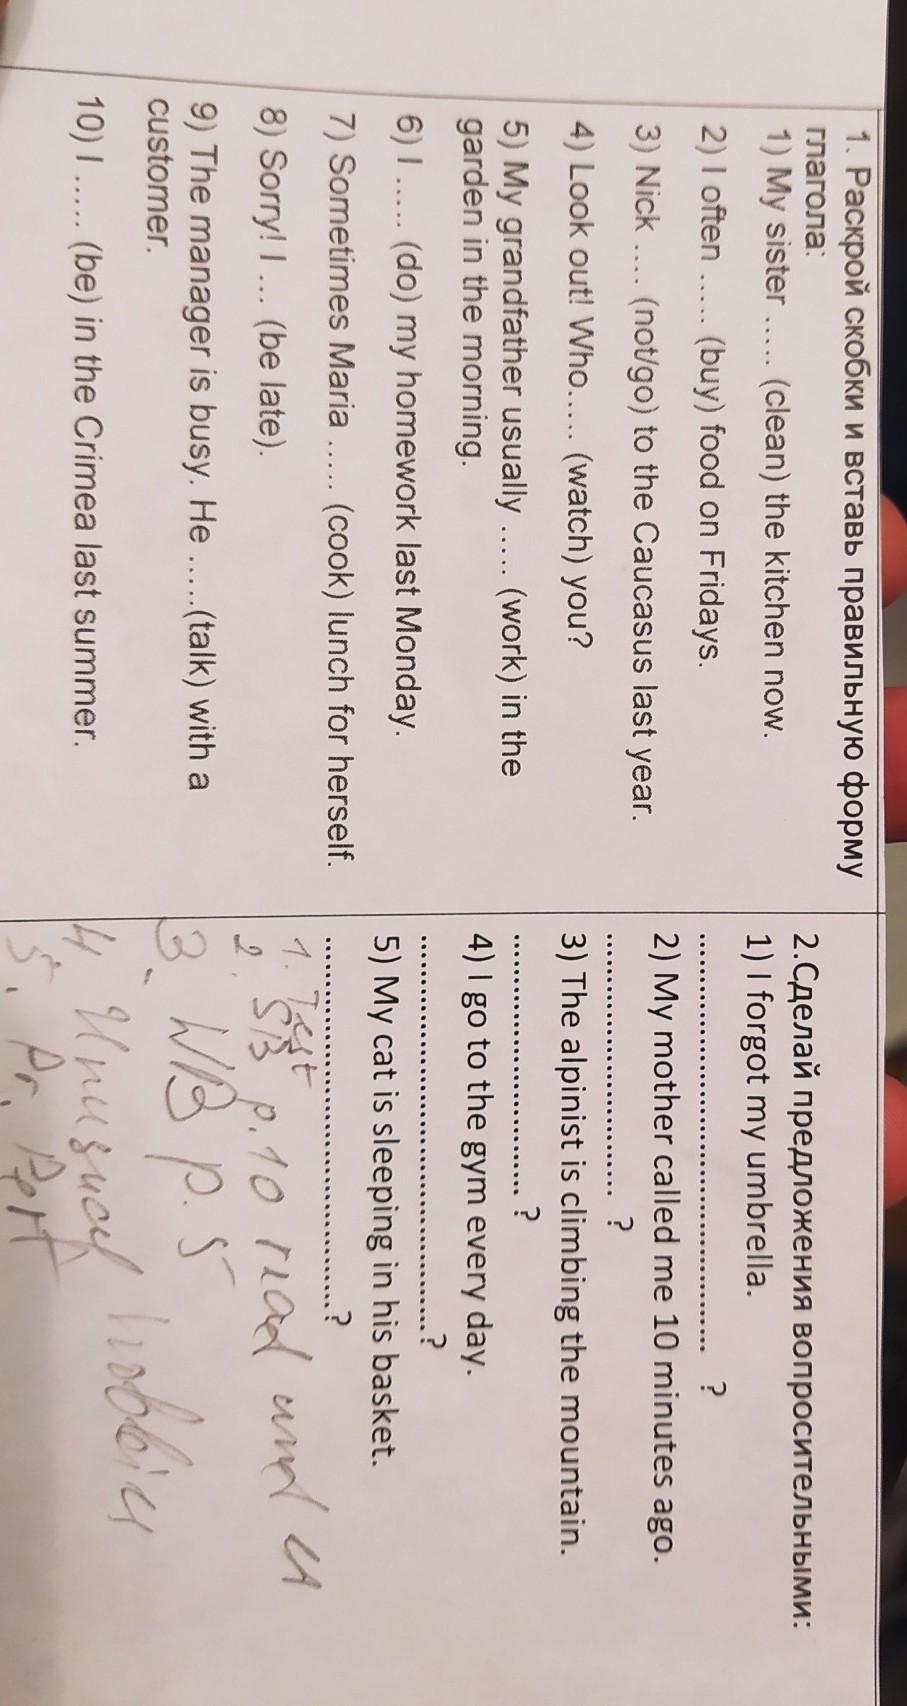 1. Раскрой скобки и вставь правильную форму
глагола:
1) My sister ...... (clean) the kitchen now.
2) I often ...... (buy) food on Fridays.
3) Nick .... (not/go) to the Caucasus last year.
4) Look out! Who.... (watch) you?
5) My grandfather usually ...... (work) in the
garden in the morning.
6) I ..... (do) my homework last Monday.
7) Sometimes Maria ...... (cook) lunch for herself.
8) Sorry! I ... (be late).
9) The manager is busy. He .....(talk) with a
customer.
10) I ..... (be) in the Crimea last summer.
2.Сделай предложения вопросительными:
1) I forgot my umbrella.
.............................................. ?
2) My mother called me 10 minutes ago.
............................ ?
3) The alpinist is climbing the mountain.
............................ ?
4) I go to the gym every day.
............................................?
5) My cat is sleeping in his basket.
..........................................?
1. Test
2. SB p. 10 read
3. WB p. 5
4. Unusual hobbies
5. Pr.